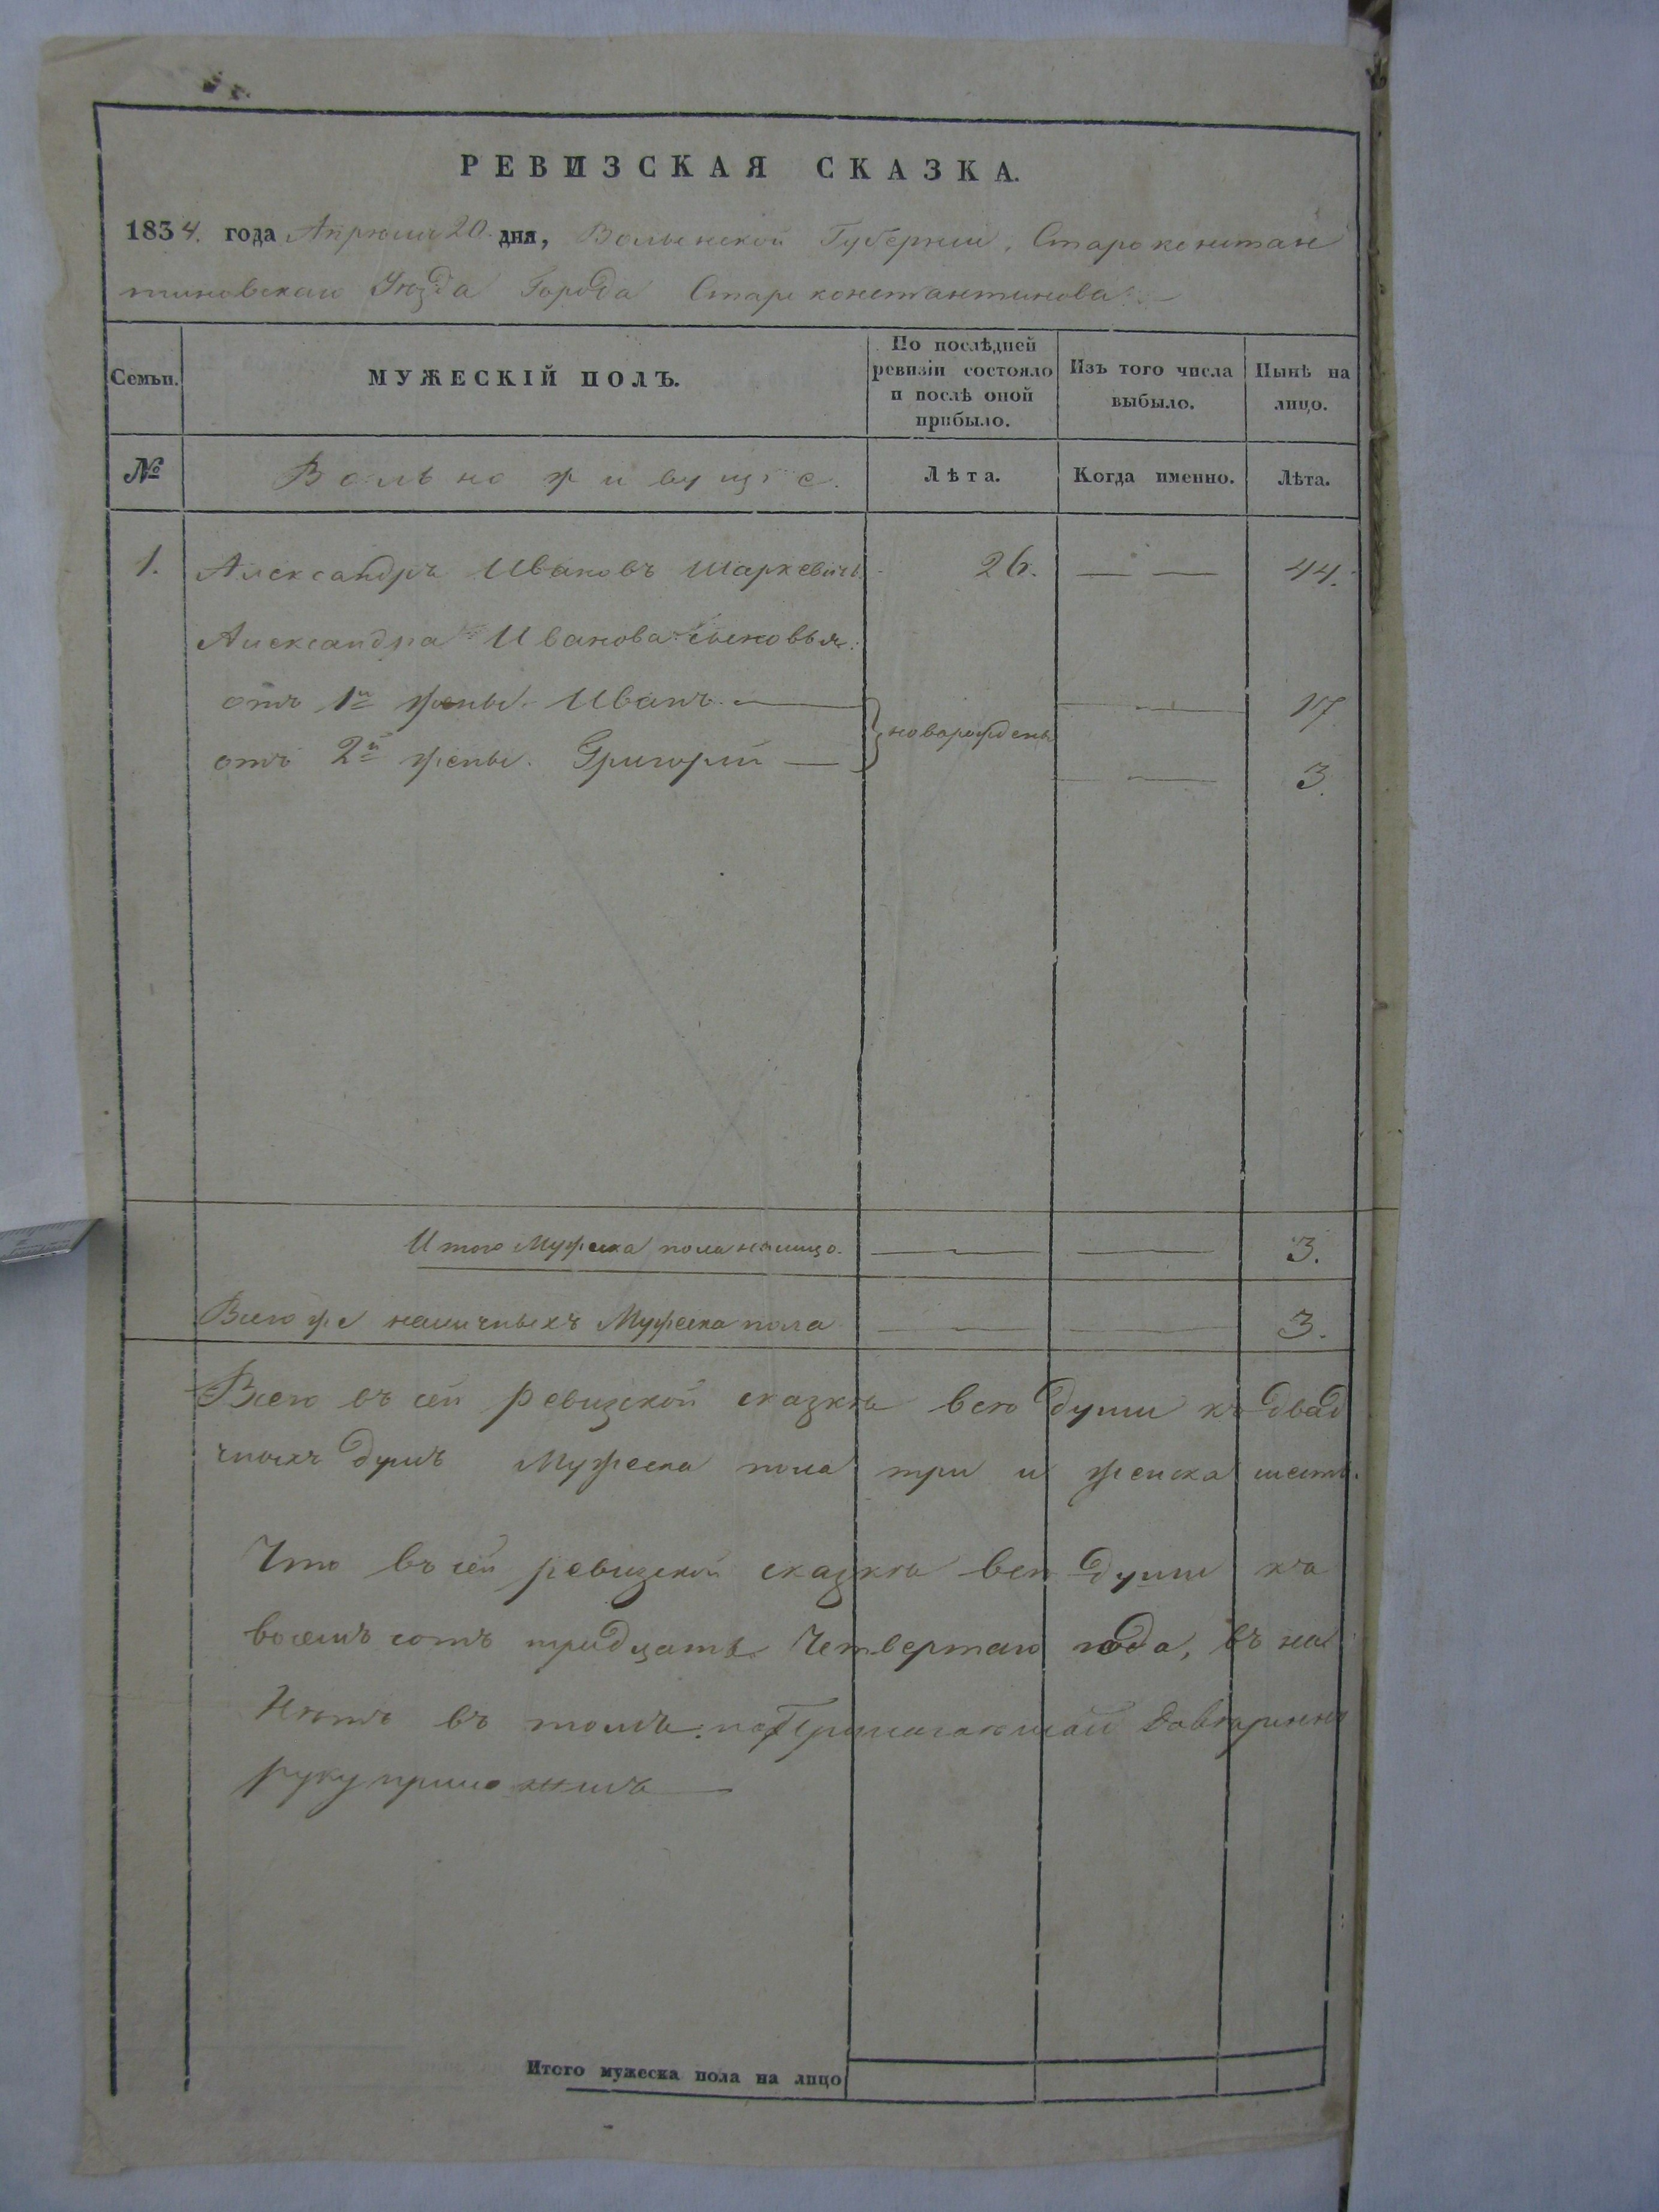 РЕВИЗСКАЯ СКАЗКА.
1834. года Апреля 20 дня, Волынской Губернии, Староконстан
тиновскаго Уезда Города Староконстантинова
Семьи.
МУЖЕСКІЙ ПОЛЪ.
По послѣдней
ревизіи состояло
и послѣ оной
прибыло.
Изъ того числа
выбыло.
Нынѣ на
лицо.
№
Вольно живущіе.
Лѣта.
Когда именно.
Лѣта.
1. Александръ Ивановъ Шаркевичъ 26. 44.
Александра Иванова сыновья
отъ 1й жены. Иванъ 17
новорождены
отъ 2й жены. Григорій 3.
Итого Мужеска пола налицо. 3.
Всего же наличныхъ Мужеска пола 3.
Всего въ сей ревизской сказкѣ всѣ души къ
душъ Мужеска пола три и женска шесть.
Что въ сей ревизской сказкѣ всѣ души къ
восемъ сотъ тридцать Четвертаго года, въ на
въ томъ.
руку приложилъ
Итого мужеска пола на лицо